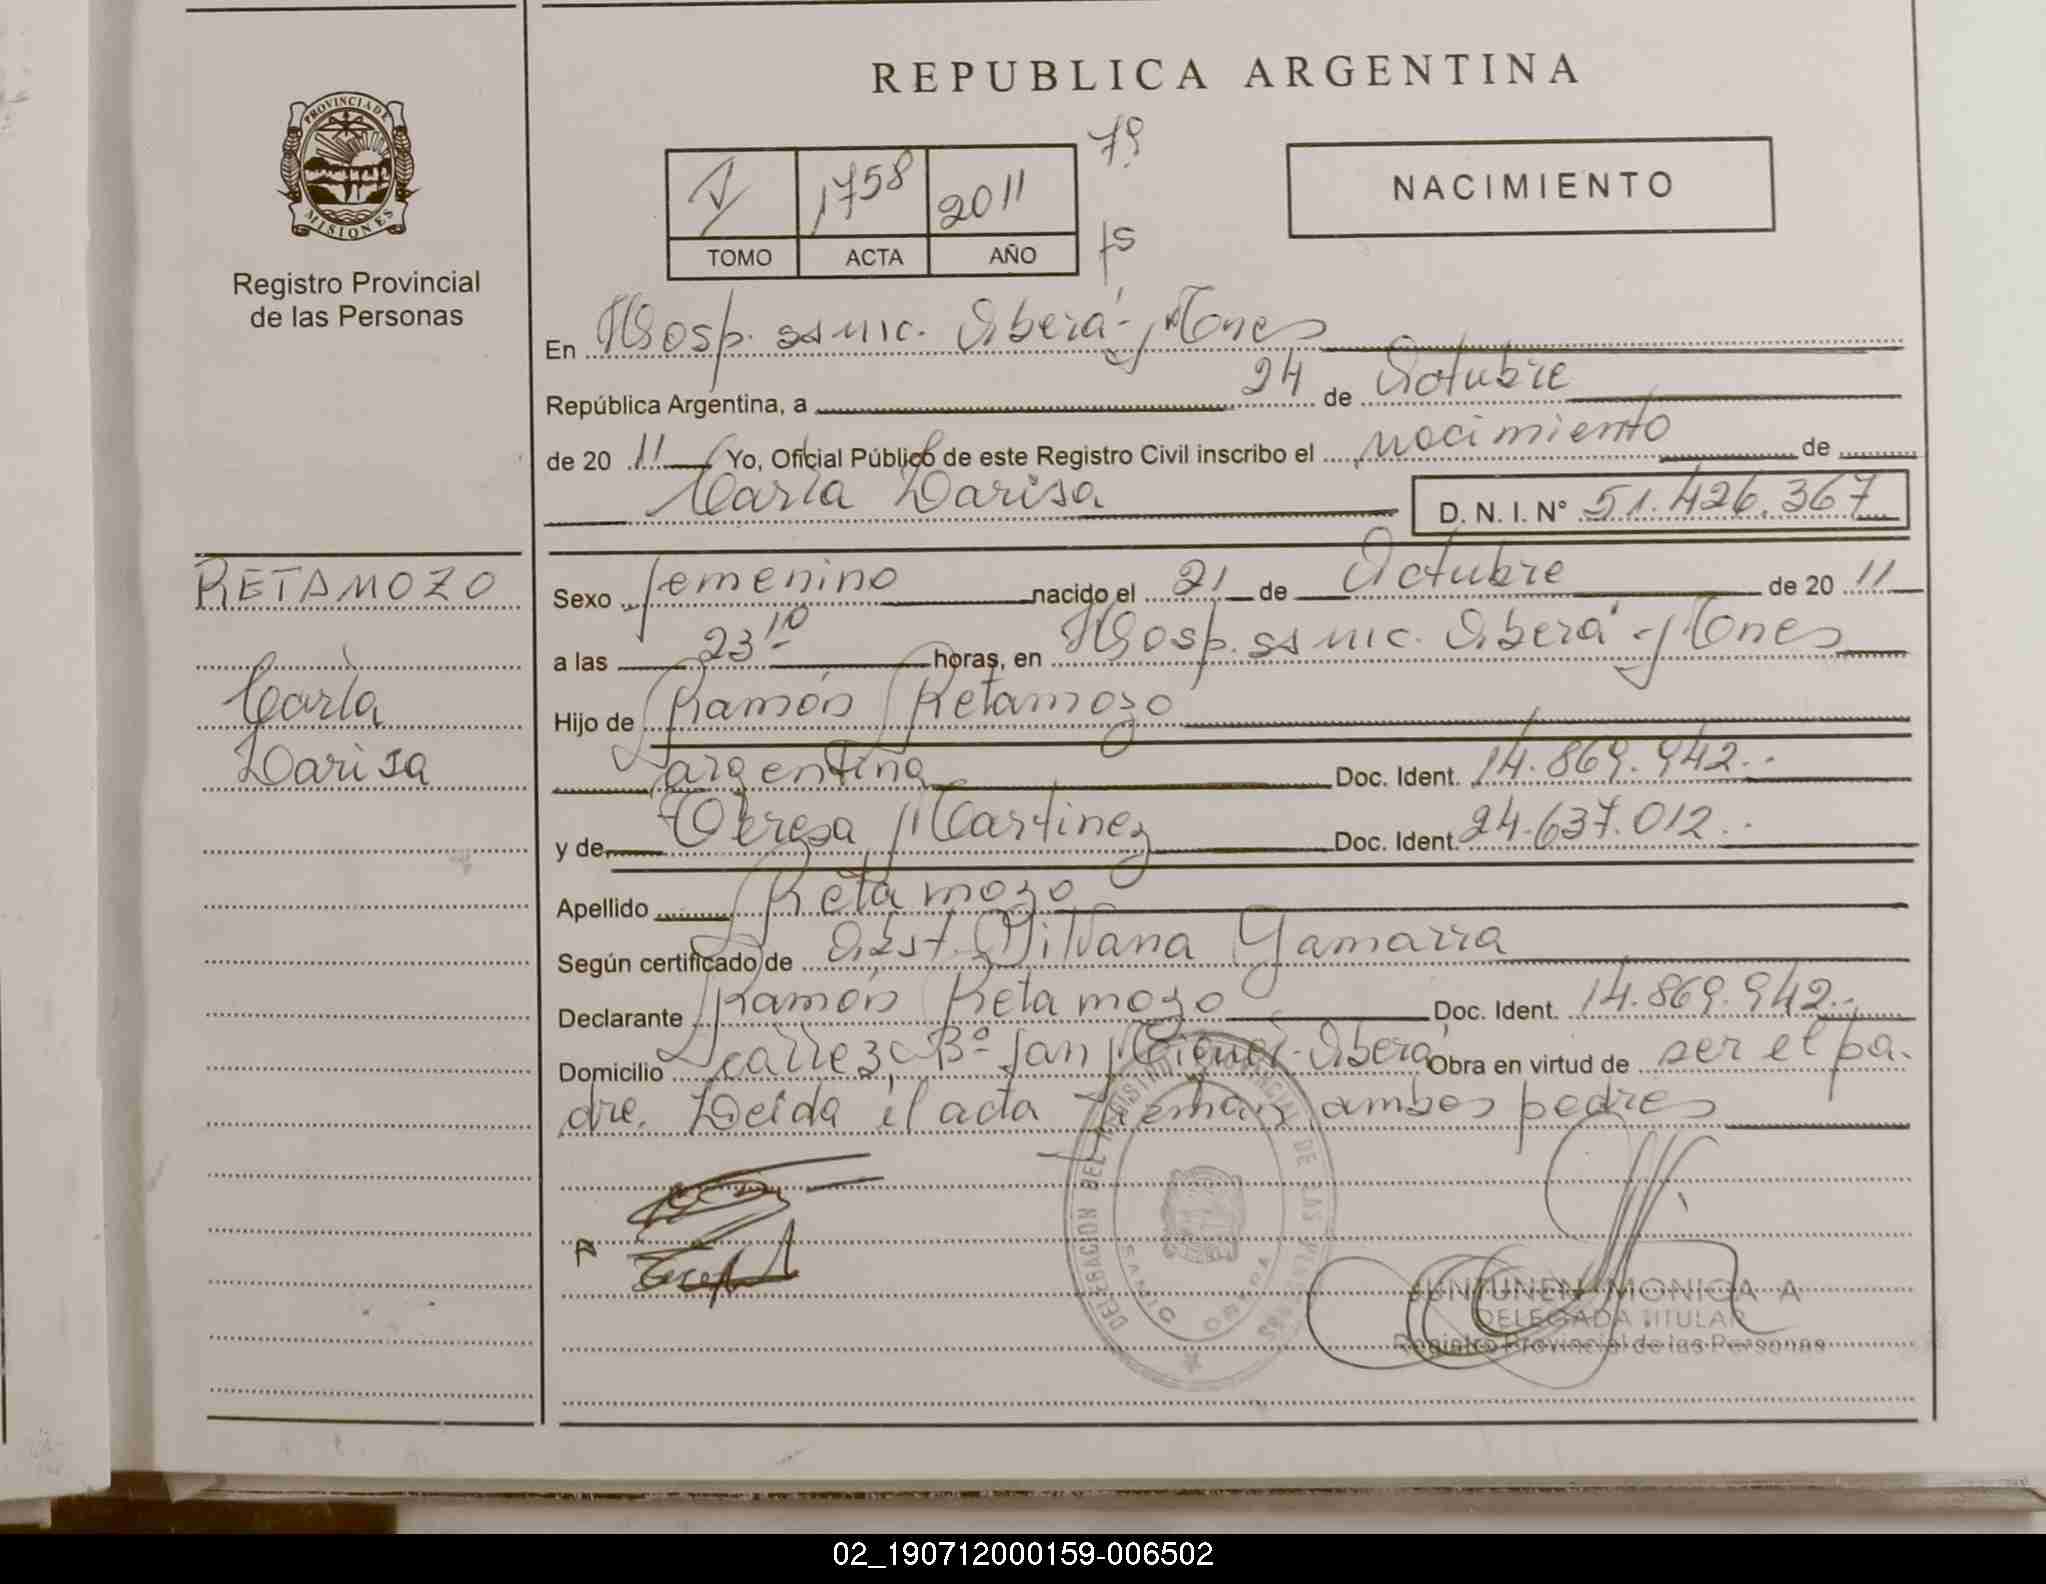 REPUBLICA ARGENTINA
PROVINCIA DE
MISIONES
Registro Provincial
de las Personas
1758 2011
TOMO ACTA AÑO
NACIMIENTO
En Hosp. ssmic. Oberá - Mnes
República Argentina, a 24 de Octubre
de 20 11 Yo, Oficial Público de este Registro Civil inscribo el nacimiento de
Carla Larisa D. N. I. N° 51.426.367
RETAMOZO
Carla
Larisa
Sexo femenino nacido el 21 de Octubre de 20 11
a las 23 10 horas, en Hosp. ssmic. Oberá - Mones
Hijo de Ramón Retamozo
argentina Doc. Ident. 14.869.942..
y de Teresa Martinez Doc. Ident. 24.637.012..
Apellido Retamozo
Según certificado de Obst. Silvana Gamarra
Declarante Ramón Retamozo Doc. Ident. 14.869.942..
Domicilio Bº San Miguel - Oberá Obra en virtud de ser el pa-
dre. Leida el acta firman ambos padres
DELEGACION DEL REGISTRO PROVINCIAL DE LAS PERSONAS
JUNTUNEN MONICA A
DELEGADA TITULAR
Registro Provincial de las Personas
02_190712000159-006502